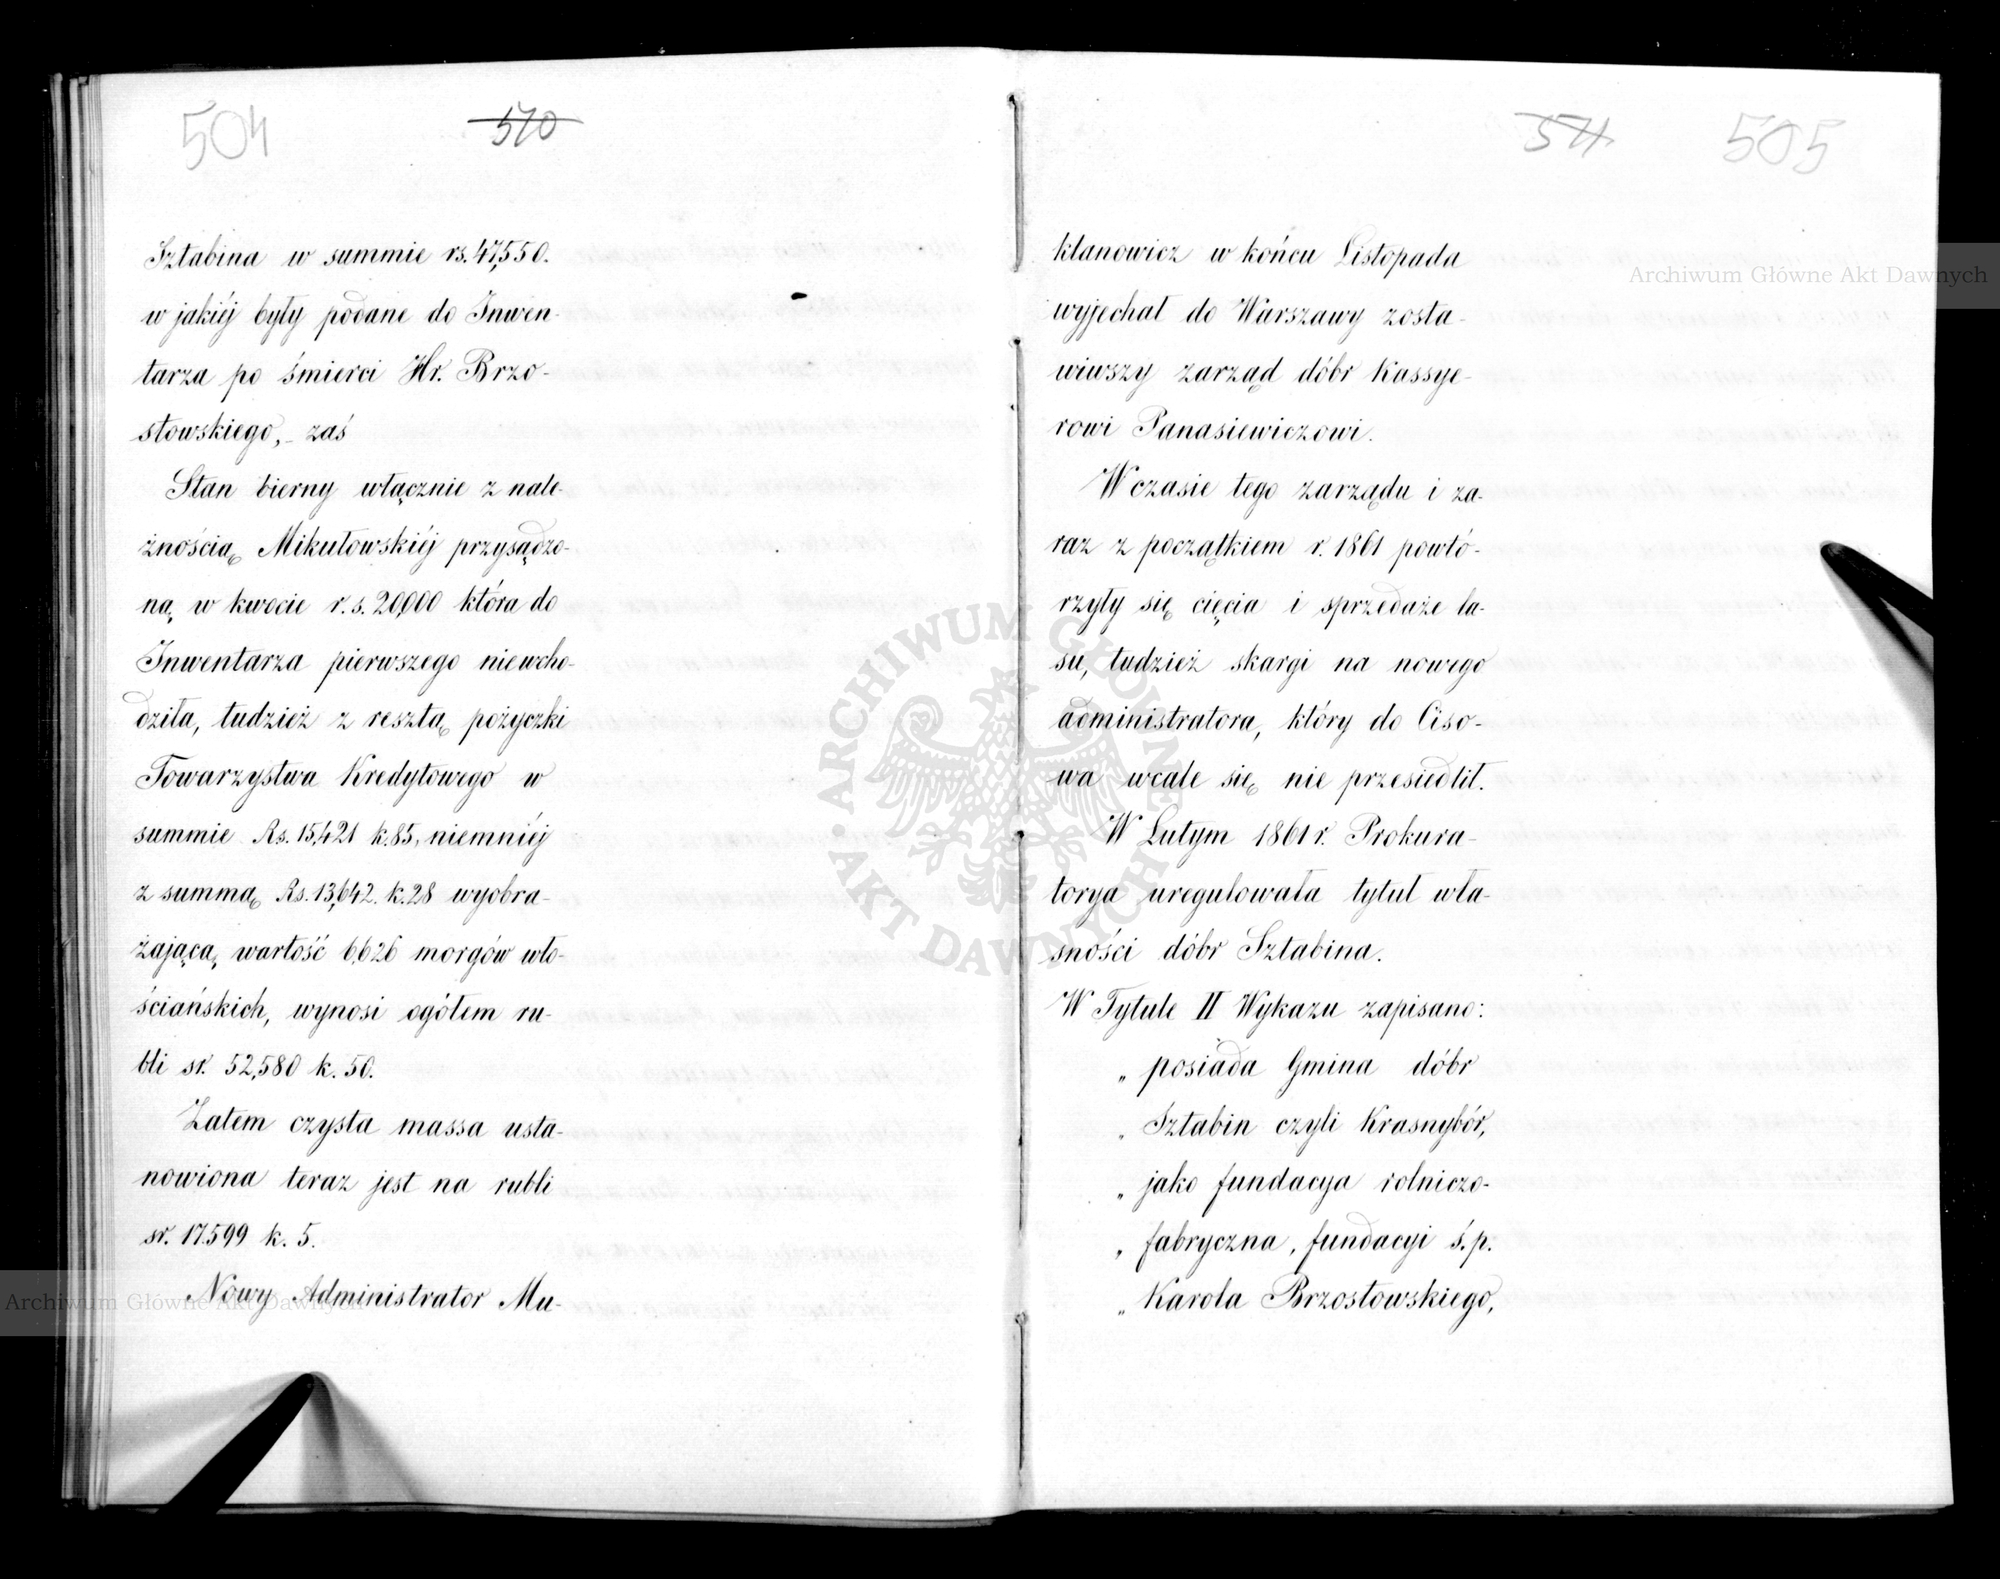 504
510
Sztabina w summie rs. 47,550.
w jakiéj były podane do Inwen-
tarza po śmierci Hr. Brzo-
stowskiego, zaś
Stan bierny włącznie z nale-
żnością Mikułowskiéj przysądzo-
ną, w kwocie r. s. 20,000 która do
Inwentarza pierwszego niewcho-
dziła, tudzież z resztą pożyczki
Towarzystwa Kredytowego w
summie Rs. 15,421 k. 85, niemniéj
z summą Rs. 13,642. k. 28 wyobra-
żającą wartość 6,626 morgów wło-
ściańskich, wynosi ogółem ru-
bli sr. 52,580 k. 50.
Zatem czysta massa usta-
nowiona teraz jest na rubli
sr. 17.599 k. 5.
Nowy Administrator Mu-
511
505
klanowicz w końcu Listopada
wyjechał do Warszawy zosta-
wiwszy zarząd dóbr Kassye-
rowi Panasiewiczowi.
W czasie tego zarządu i za-
raz z początkiem r. 1861 powtó-
rzyły się cięcia i sprzedaże la-
su, tudzież skargi na nowego
administratora, który do Ciso-
wa wcale się nie przesiedlił.
W Lutym 1861 r. Prokura-
torya uregulowała tytuł wła-
sności dóbr Sztabina.
W Tytule II Wykazu zapisano:
„ posiada Gmina dóbr
„ Sztabin czyli Krasnybór,
„ jako fundacya rolniczo-
„ fabryczna, fundacyi ś. p.
„ Karola Brzostowskiego,
Archiwum Główne Akt Dawnych
Archiwum Główne Akt Dawnych
ARCHIWUM GŁÓWNE AKT DAWNYCH